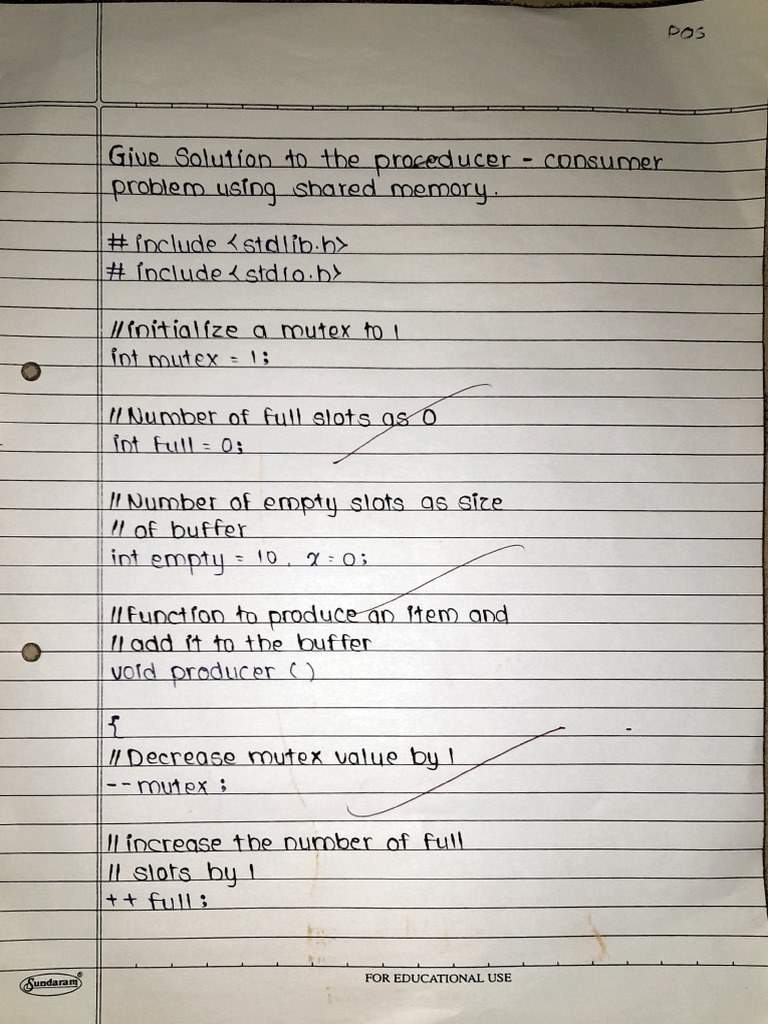 DOS
Give Solution to the proceducer - consumer
problem using shared memory.
# include <stdlib.h>
# include <stdio.h>
//initialize a mutex to 1
int mutex = 1;
//Number of full slots as 0
int full = 0;
//Number of empty slots as size
// of buffer
int empty = 10, x = 0;
//Function to produce an item and
// add it to the buffer
void producer ()
{
//Decrease mutex value by 1
--mutex ;
//increase the number of full
// slots by 1
++ full ;
Sundaram®
FOR EDUCATIONAL USE